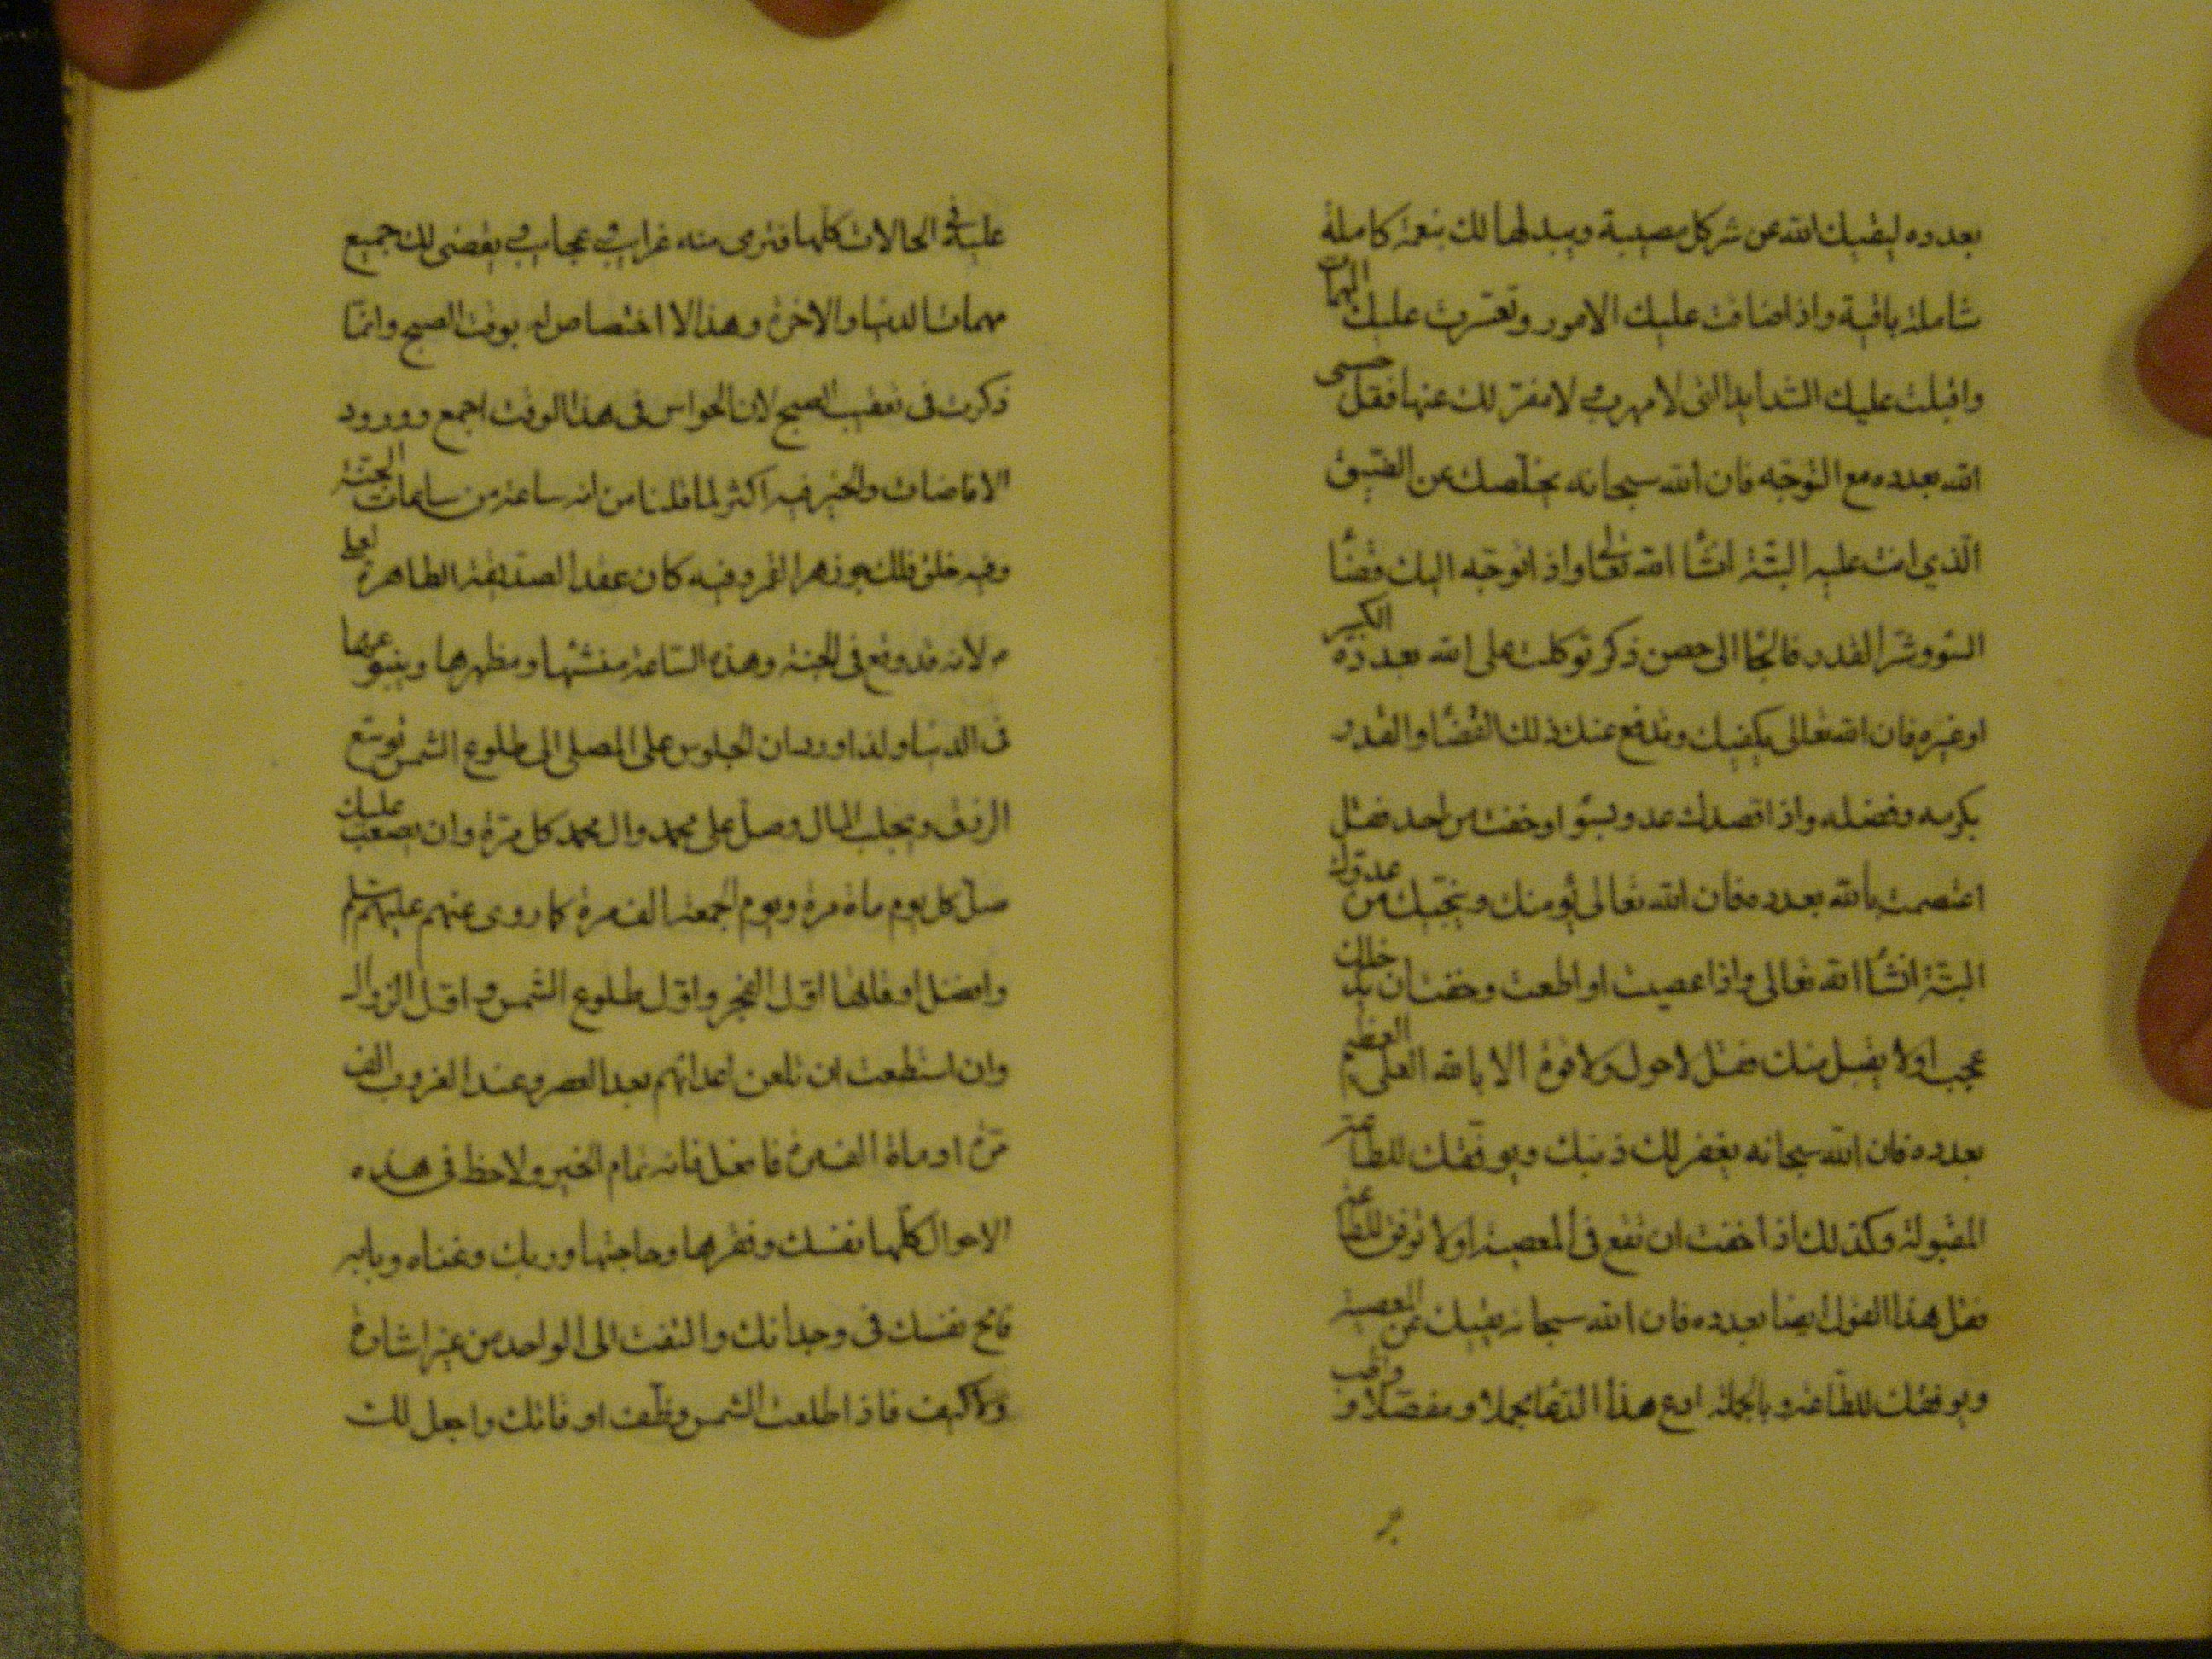 بعدده ليقيك الله عن شر كل مصيبة ويبدلها لك بنعمة كاملة
شاملة باقية واذا ضاقت عليك الامور وتعسرت عليك المهمات
واقبلت عليك الشدايد التى لا مهرب ولا مفر لك عنها فقل حسبى
الله بعدده مع التوجه فان الله سبحانه يخلصك عن الضيق
الذي انت عليه البتة انشا الله تعالى واذا توجه اليك قضأ
السوء وشر القدر فالجأ الى حصن ذكر توكلت على الله بعدده الكبير
او غيره فان الله تعالى يكفيك ويدفع عنك ذلك القضأ والقدر
بكرمه وفضله واذا قصدك عدو بسوء او خفت من احد فقل
اعتصمت بالله بعدده فان الله تعالى يؤمنك وينجيك من عدوك
البتة انشأ الله تعالى واذا عصيت او اطعت وخفت ان يدخلك
عجب او لا يقبل منك فقل لاحول ولا قوة الا بالله العلى العظيم
بعدده فان الله سبحانه يغفر لك ذنبك ويوفقك للطاعة
المقبولة وكذلك اذا خفت ان تقع فى المعصية او لا توفق للطاعة
فقل هذا القول ايضا بعدده فان الله سبحانه يقيك عن المعصية
ويوفقك للطاعة وبالجملة ادع هذا الدعا مجملا ومفصلا وراقب
علية فى الحالات كلها فترى منه غرايب وعجايب ويقضى لك جميع
مهمات الدنيا والاخرة وهذا لا اختصاص له بوقت الصبح وانما
ذكرت فى تعقيب الصبح لان الحواس فى هذا الوقت اجمع وورود
الافاضات والخير فيه اكثر لما قلنا من انه ساعة من ساعات الجنة
وفيه خلق فلك جوزهر القمر وفيه كان عقد الصديقة الطاهرة لعلى
لانه قد وقع فى الجنة وهذه الساعة منشئها ومظهرها وينبوعها
فى الدنيا ولذا ورد ان الجلوس على المصلى الى طلوع الشمس يوسع
الرزق ويجلب المال وصل على محمد وال محمد كل مرة وان يصعب عليك
صل كل يوم ماة مرة ويوم الجمعة الف مرة كما روى عنهم عليهم سلم
وافضل اوقاتها اول الفجر واول طلوع الشمس واول الزوال
وان استطعت ان تلعن اعدائهم بعد العصر وعند الغروب الف
مرة او ماة الف مرة فافعل فانه تمام الخير ولاحظ فى هذه
الاحوال كلها نفسك وفقرها وحاجتها وربك وغناه وبابه
فامح نفسك فى وجدانك والتفت الى الواحد من غير اشارة
ولا كيف فاذا طلعت الشمس وظف اوقاتك واجعل لك